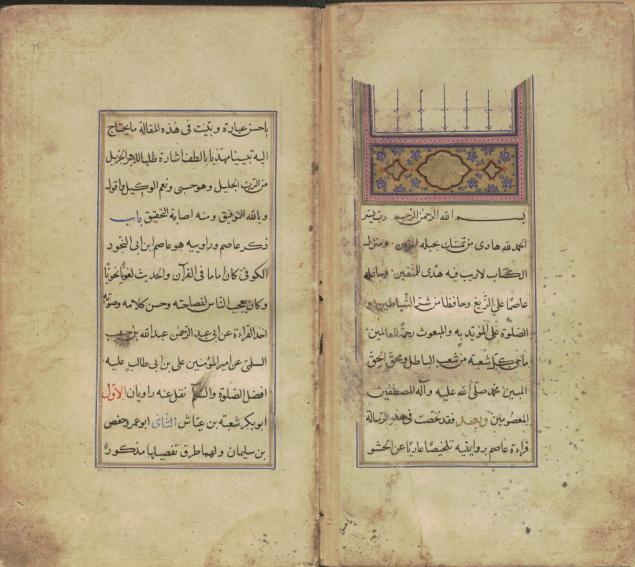 بسم الله الرحمن الرحيم
الحمد لله هادى من تمسّك بحبله المتين ومنزل
الكتاب لاريب فيه هدًى للمتّقين وجاعله
عاصمًا على الزّيغ وحافظا من شرّ الشّياطين
الصّلوة على المؤيّد به والمبعوث رحمةً للعالمين
ماحى كلّ شعبة من شعب الباطل ومحقّ الحقّ
المبين محمّد صلّى الله عليه وآله المصطفين
المعصومين وبعد فقد لخّصت فى هذه الرّسالة
قراءة عاصم بروايتيه تلخيصًا عاريًا عن الحشو
باحسن عبارة وبيّنت فى هٰذه المقالة ما يحتاج
اليه تبيينا مهذّبا بالطف اشارة طلبا للاجر الجزيل
من الربّ الجليل وهو حسبى ونعم الوكيل فاقول
وبالله التوفيق ومنه اصابة التحقيق باب
ذكر عاصم وراوييه هو عاصم ابن ابى النجود
الكوفى كان اماما فى القرآن والحديث لغويًّا نحويًّا
وكان يعجب النّاس لفصاحته وحسن كلامه وصوته
اخذ القراءة عن ابى عبد الرّحمٰن عبد الله بن حبيب
السلمىّ عن أمير المؤمنين على بن ابى طالب عليه
افضل الصّلوة والسّلام نقل عنه راويان الاوّل
ابو بكر شعبة بن عيّاش الثّانى ابو عمر وحفص
بن سليمان ولهما طرق تفصيلها مذكور